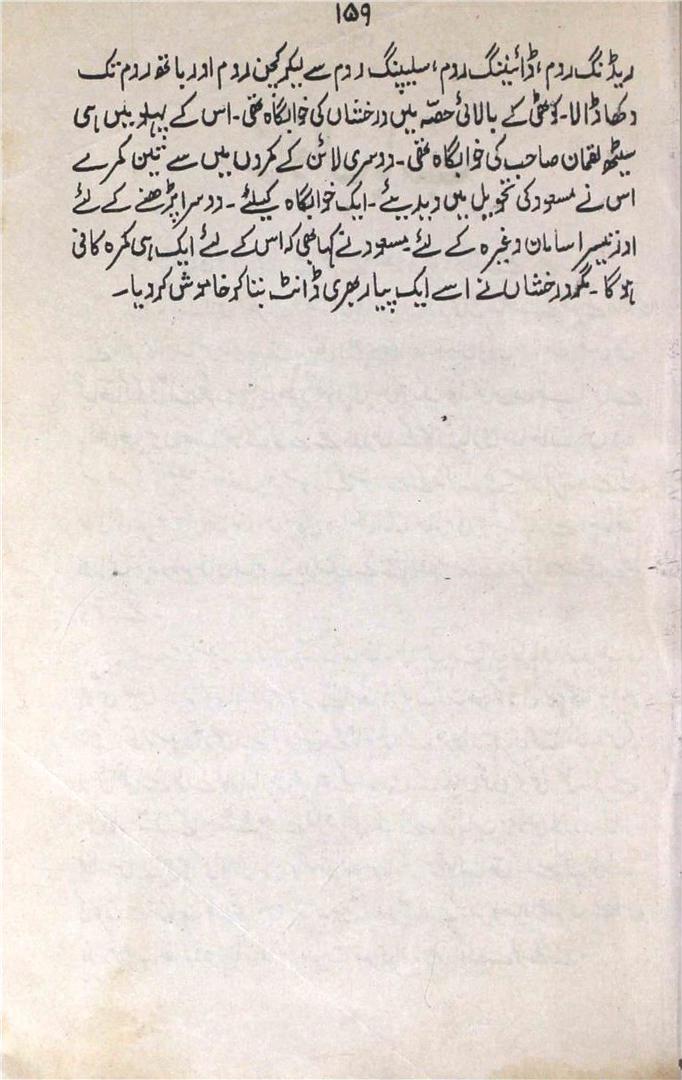 ۱۵۹
ریڈنگ روم، ڈائیننگ روم، سلیپنگ روم سے لیکر کچن روم اور باتھ روم تک
دکھا ڈالا۔ کوٹھی کے بالائی حصّہ میں درخشاں کی خوابگاہ تھی۔ اس کے پہلو میں ہی
سیٹھ لقمان صاحب کی خوابگاہ تھی۔ دوسری لائن کے کمروں میں سے تین کمرے
اس نے مسعود کی تحویل میں دیدیئے۔ ایک خوابگاہ کیلئے۔ دوسرا پڑھنے کے لئے
اور تیسرا سامان وغیرہ کے لئے۔ مسعود نے کہا بھی کہ اس کے لئے ایک ہی کمرہ کافی
ہوگا۔ مگر درخشاں نے اسے ایک پیار بھری ڈانٹ بتا کر خاموش کر دیا۔